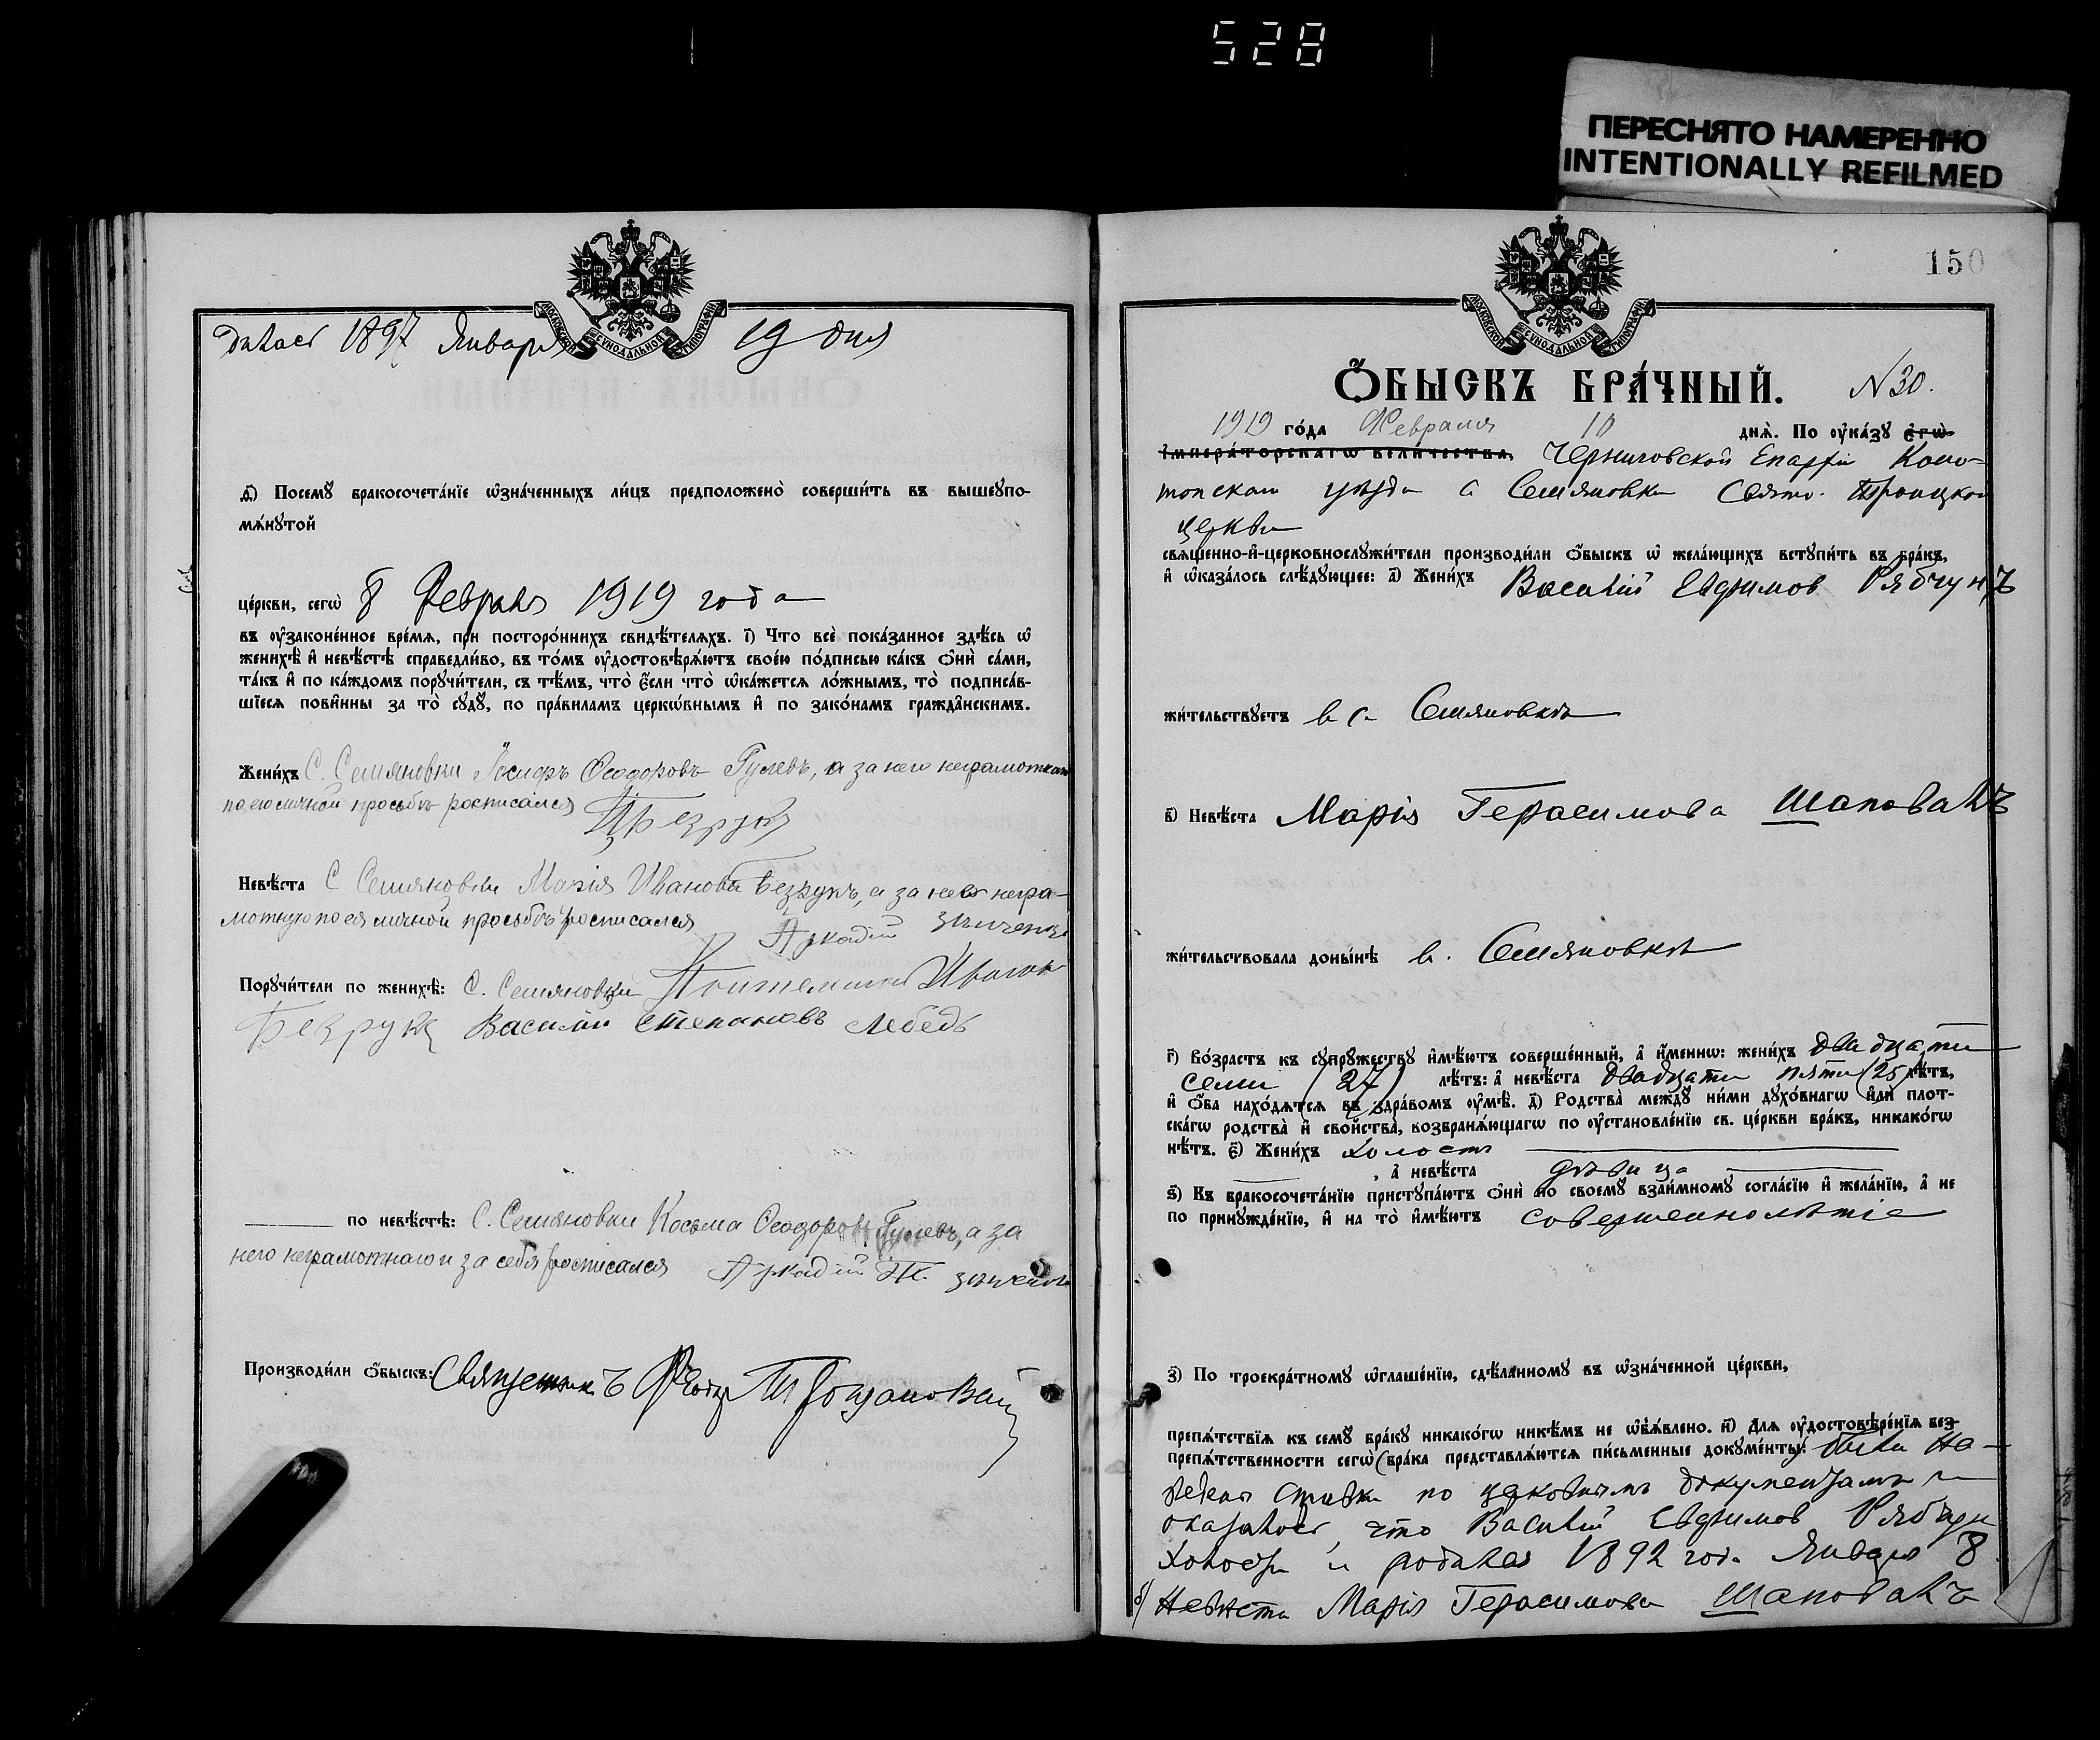 528
ПЕРЕСНЯТО НАМЕРЕННО
INTENTIONALLY REFILMED
МОСКОВСКОЙ СѴНОДАЛЬНОЙ ТИПОГРАФІИ
1897 Января 19 дня
ѳ҃) Посемꙋ̀ бракосочета́нїе ѡ҆зна́ченныхъ ли́цъ предположено̀ соверши́ть въ вышеꙋпо-
мѧ́нꙋтой
це́ркви, сегѡ̀ 8 Февраля 1919 года
въ ᲂу҆зако́ненное вре́мѧ, при посторо́ннихъ свидѣ́телѧхъ. і҃) Что̀ всѐ пока́занное здѣ́сь ѡ҆
женихѣ̀ и҆ невѣ́стѣ справедли́во, въ то́мъ ᲂу҆достовѣрѧ́ютъ свое́ю по́дписью ка́къ ѻ҆нѝ са́ми,
та́къ и҆ по ка́ждомъ порꙋчи́тели, съ тѣ́мъ, что̀ є҆́сли что̀ ѡ҆ка́жетсѧ ло́жнымъ, то̀ подписа́в-
шїесѧ пови́нны за то̀ сꙋдꙋ̀, по пра́виламъ церкѡ́внымъ и҆ по зако́намъ гражда́нскимъ.
Жени́хъ С. Семяновки Іосифъ Ѳеодоровъ Гулевъ, а за него неграмотнаго
по его личной просьбѣ росписался
Безрукъ
Невѣ́ста С Семяновки Марія Иванова Безрукъ, а за нее негра-
мотную по ея личной просьбѣ росписался Аркадій
Порꙋчи́тели по женихѣ̀: С. Семяновки Иванъ
Безрукъ Василій Степановъ Лебедь
по невѣ́стѣ: С. Семяновки Косьма Ѳеодоровъ Гулевъ, а за
него неграмотнаго и за себя росписался Аркадій
Производи́ли ѻ҆́быскъ: Священникъ
150
МОСКОВСКОЙ СѴНОДАЛЬНОЙ ТИПОГРАФІИ
Ѻ҆́БЫСКЪ БРА́ЧНЫЙ. N 30.
1919 го́да Февраля 10 днѧ̀. По ᲂу҆ка́зꙋ є҆гѡ̀
і҆мпера́торскагѡ вели́чества, Черниговской Епархіи Коно-
топскаго уѣзда с Семяновки Свято-Троицкой
церкви
свѧще́нно-и҆-церковнослꙋжи́тели производи́ли ѻ҆́быскъ ѡ҆ жела́ющихъ встꙋпи́ть въ бра́къ,
и҆ ѡ҆каза́лось слѣ́дꙋющее: а҃) Жени́хъ Василій Евфимов Рябчунъ
жи́тельствꙋетъ в с. Семяновкѣ
в҃) Невѣ́ста Марія Герасимова Шаповалъ
жи́тельствовала доны́нѣ в. Семяновкѣ
г҃) Во́зрастъ къ сꙋпрꙋ́жествꙋ и҆мѣ́ютъ соверше́нный, а҆ и҆́менно: жени́хъ двадцати
семи (27) лѣ́тъ: а҆ невѣ́ста двадцати пяти (25) лѣ́тъ,
и҆ ѻ҆́ба нахо́дѧтсѧ въ здра́вомъ ᲂу҆мѣ̀. д҃) Родства̀ междꙋ̀ ни́ми дꙋхо́внагѡ и҆лѝ плот-
ска́гѡ родства̀ и҆ свойства̀, возбранѧ́ющагѡ по ᲂу҆становле́нїю св. це́ркви бра́къ, никако́гѡ
нѣ́тъ. є҃) Жени́хъ холостъ
, а҆ невѣ́ста дѣвица
ѕ҃) Къ бракосочета́нїю пристꙋпа́ютъ ѻ҆нѝ по своемꙋ̀ взаи́мномꙋ согла́сїю и҆ жела́нїю, а҆ не
по принꙋжде́нїю, и҆ на то̀ и҆мѣ́ютъ совершеннолѣтіе
з҃) По троекра́тномꙋ ѡ҆глаше́нїю, сдѣ́ланномꙋ въ ѡ҆зна́ченной це́ркви,
препѧ́тствїѧ къ семꙋ̀ бра́кꙋ никако́гѡ никѣ́мъ не ѡ҆б̾ѧ́влено. и҃) Длѧ ᲂу҆достовѣре́нїѧ без-
препѧ́тственности сегѡ̀ бра́ка представлѧ́ютсѧ пи́сьменные докꙋме́нты: были на-
ведены справки по церковнымъ документамъ и
оказалось, что Василій Евфимов Рябчун
холостъ и родился 1892 года Января 8
б) Невѣста Марія Герасимова Шаповалъ